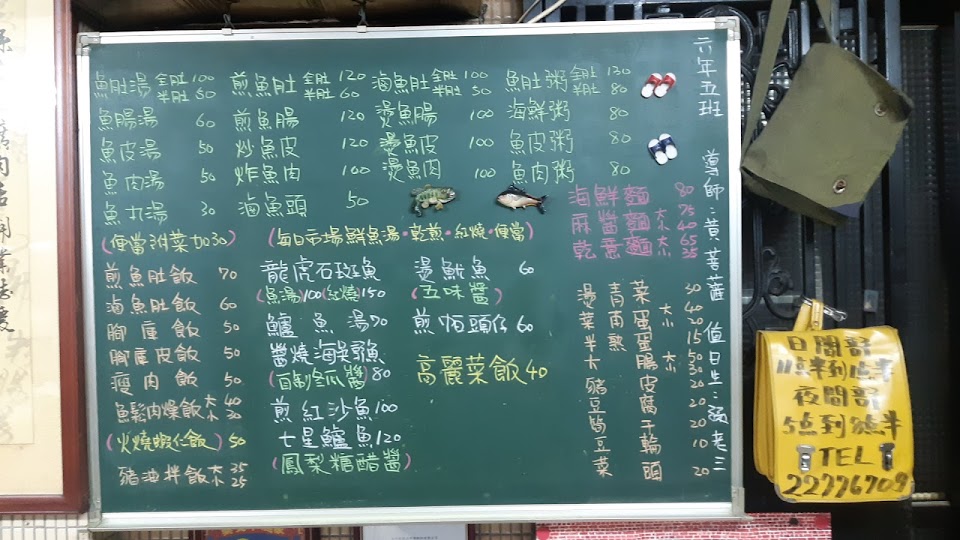 魚肚湯 全肚100 半肚50
魚腸湯 60
魚皮湯 50
魚肉湯 50
魚丸湯 30
煎魚肚 全肚120 半肚60
煎魚腸 120
炒魚皮 120
炸魚肉 100
滷魚頭 50
滷魚肚 全肚100 半肚50
燙魚腸 100
燙魚皮 100
燙魚肉 100
魚肚粥 全肚130 半肚80
海鮮粥 80
魚皮粥 80
魚肉粥 80
海鮮麵 80
麻醬麵 大75 小40
乾意麵 大65 小35
(便當附菜加30)
(每日市場鮮魚湯·乾煎·紅燒·便當)
煎魚肚飯 70
滷魚肚飯 60
腳庫飯 50
腳庫皮飯 50
瘦肉飯 50
魚鬆肉燥飯 大40 小30
(火燒蝦仁飯) 50
豬油拌飯 大35 小25
龍虎石斑魚
(魚湯)100(紅燒)150
鱸魚湯70
醬燒海吳郭魚
(自制冬瓜醬)80
煎紅沙魚100
七星鱸魚120
(鳳梨糖醋醬)
燙魷魚 60
(五味醬)
煎虱目頭仔60
高麗菜飯40
燙青菜 30
菜甫蛋 大40 小20
半熟蛋 15
大腸 大50 小30
豬皮 20
豆腐 20
筍干 20
豆輪 10
菜頭 20
六年五班
導師:黃菩薩
值日生:張老三
日間部
11点半到1点半
夜間部
5点到8点半
TEL
22776709